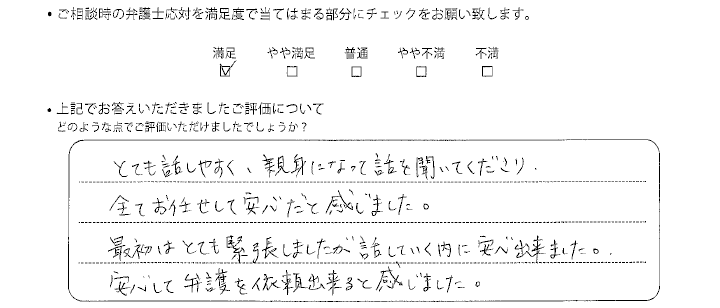 ・ご相談時の弁護士応対を満足度で当てはまる部分にチェックをお願い致します。
満足 やや満足 普通 やや不満 不満
☑ □ □ □ □
・上記でお答えいただきましたご評価について
どのような点でご評価いただけましたでしょうか？
とても話しやすく、親身になって話を聞いてくださり.
全てお任せして安心だと感じました。
最初はとても緊張しましたが話していく内に安心出来ました。
安心して弁護を依頼出来ると感じました。